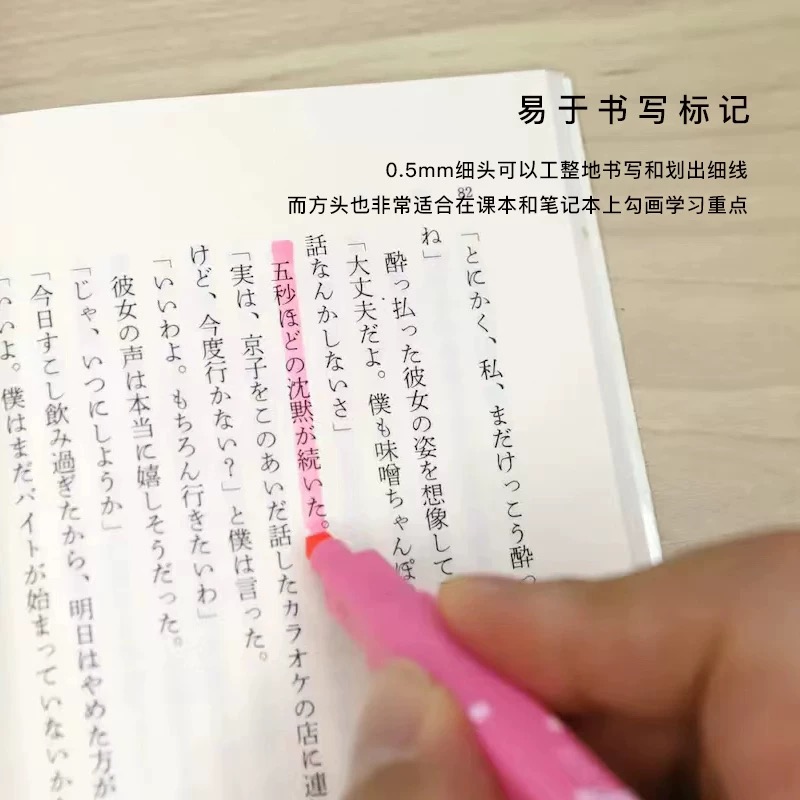 易于书写标记
0.5mm细头可以工整地书写和划出细线
而方头也非常适合在课本和笔记本上勾画学习重点
82
「とにかく、私、まだけっこう酔っ
ね」
酔っ払った彼女の姿を想像して
「大丈夫だよ。僕も味噌ちゃんぽ
話なんかしないさ」
五秒ほどの沈黙が続いた。
「実は、京子をこのあいだ話したカラオケの店に連
けど、今度行かない?」と僕は言った。
「いいわよ。もちろん行きたいわ」
彼女の声は本当に嬉しそうだった。
「じゃ、いつにしようか」
「今日すこし飲み過ぎたから、明日はやめた方が
「いいよ。僕はまだバイトが始まっていないか